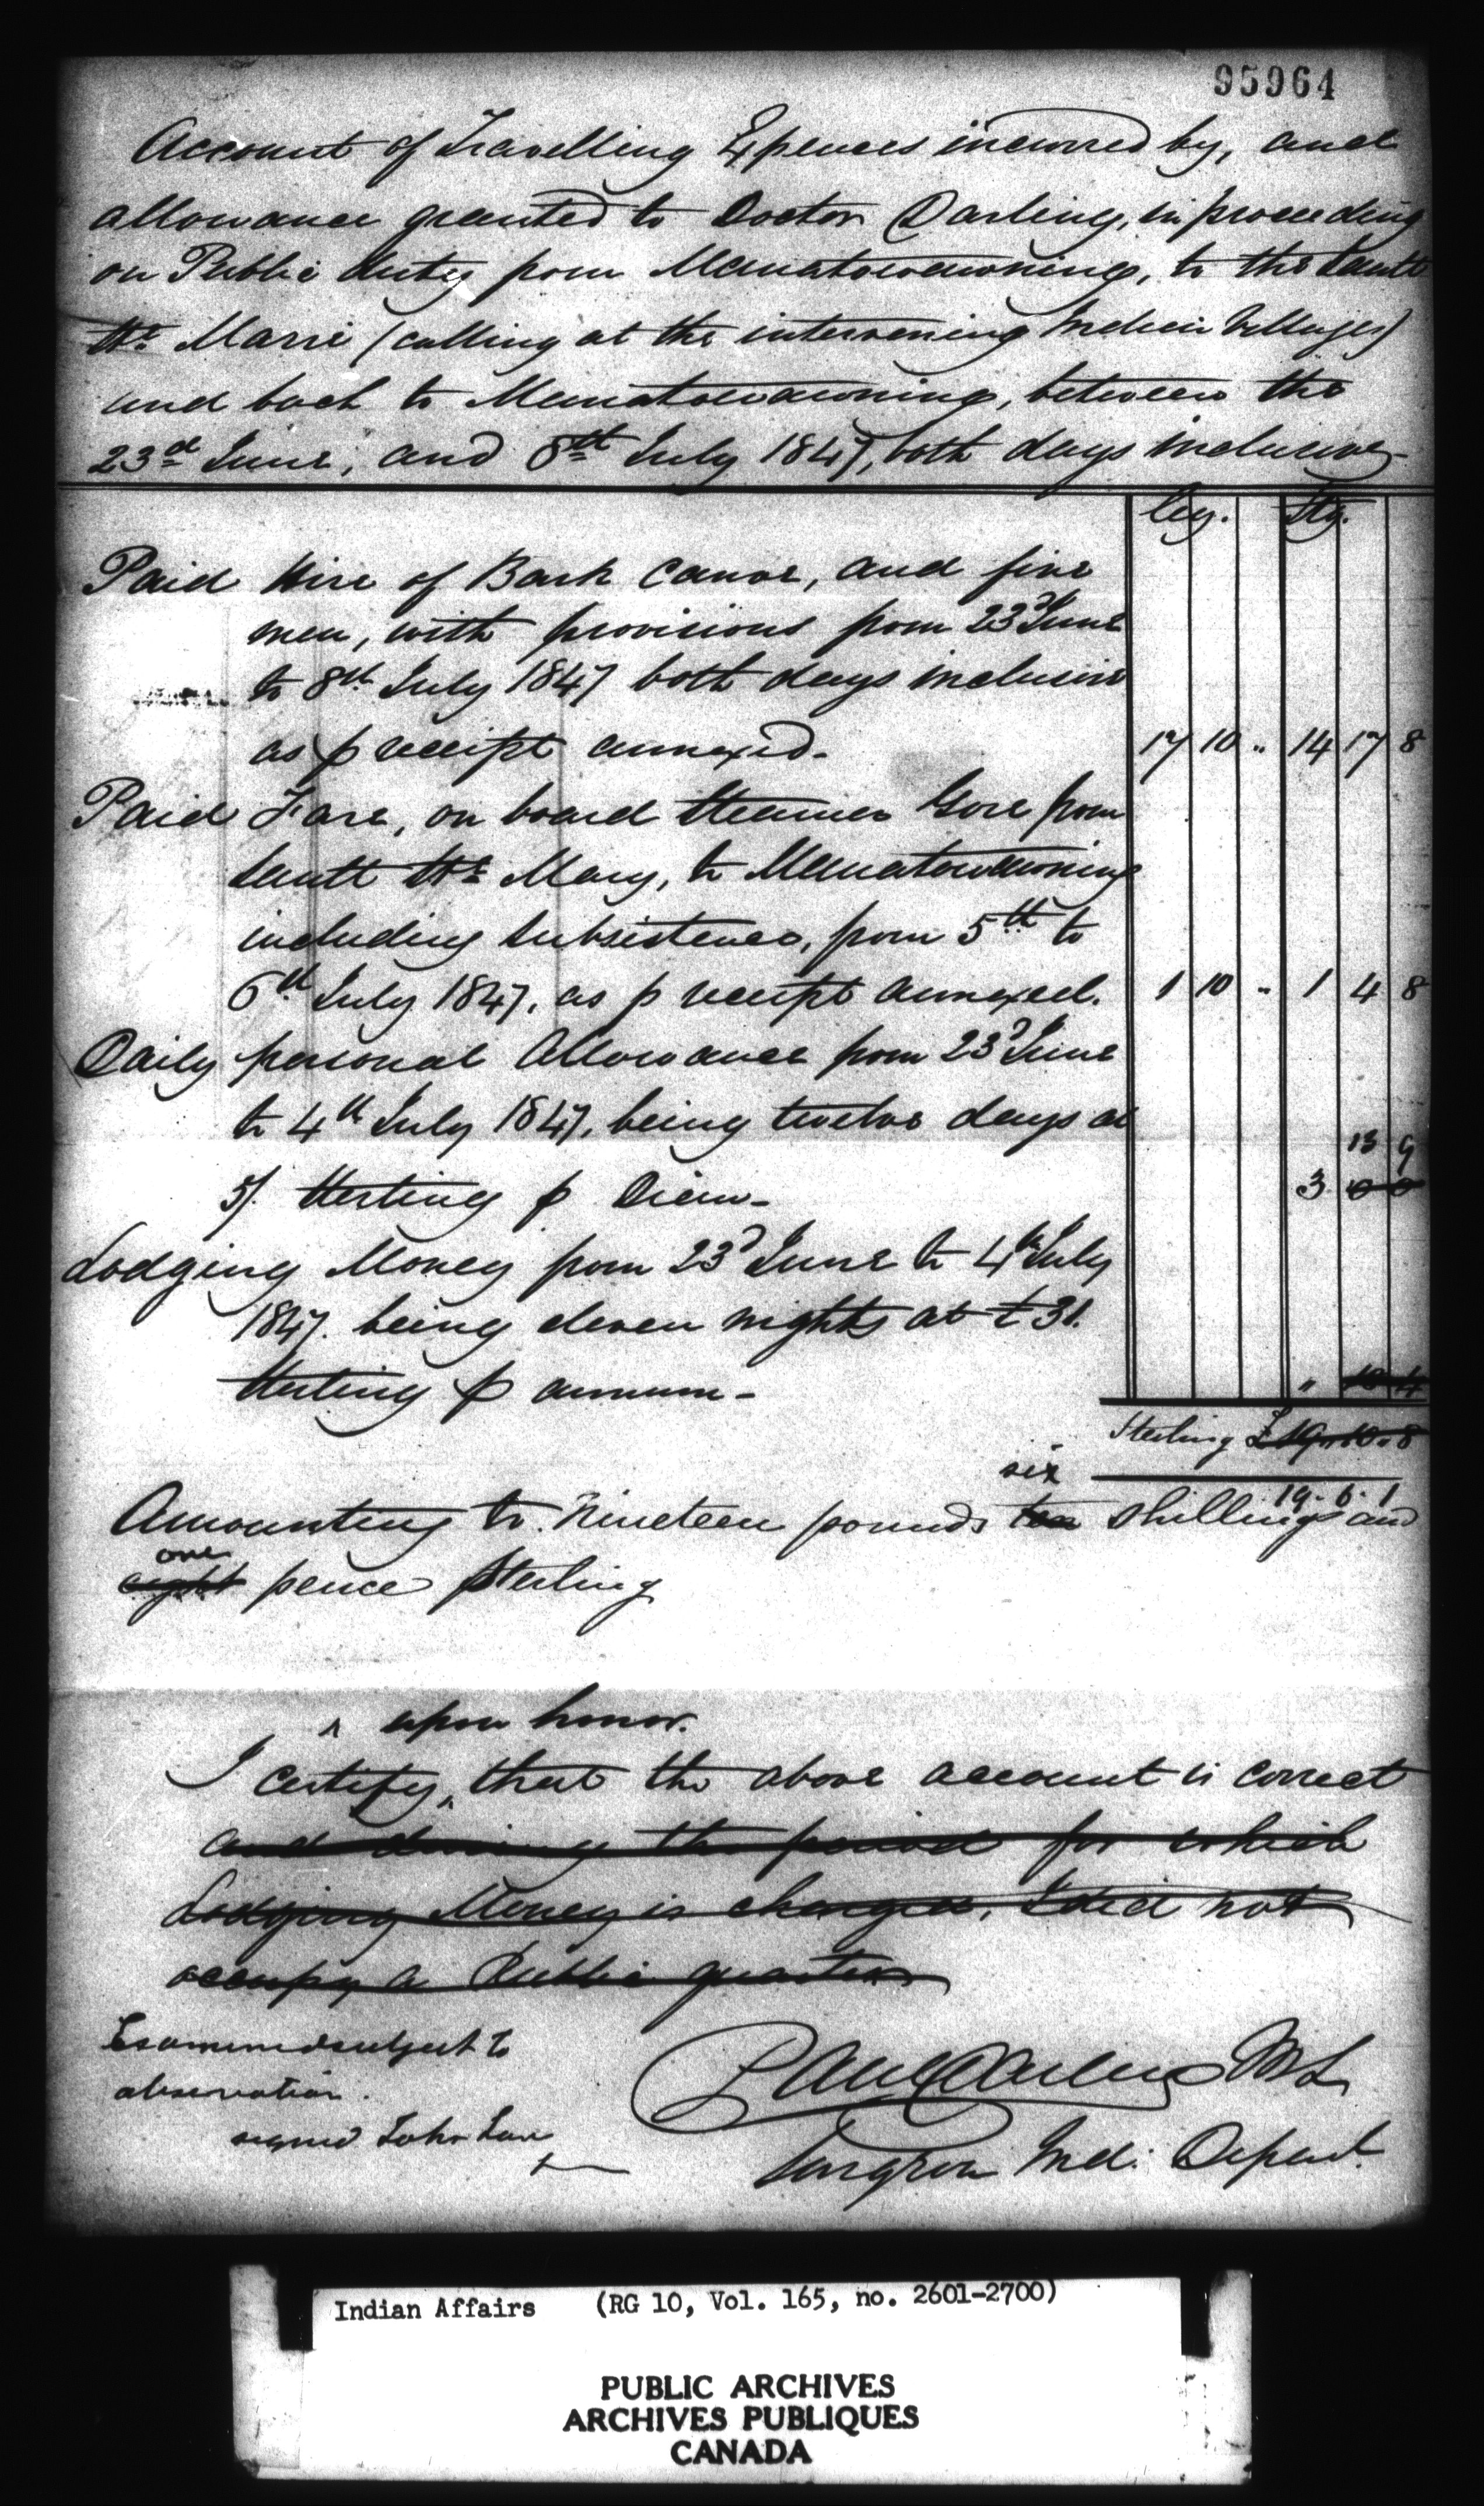 95964
Account of Travelling Expences incurred by, and
allowance granted to Doctor Darling, in proceeding
on Public duty from Manatowawning, to the Sault
Ste Marie (calling at the intervening Indian Villages)
and back to Manatowawning, between the
23d June, and 8th July 1847, both days inclusive
Cey. Stg.
Paid Hire of Bark Canoe, and five
men, with provisions from 23d June
to 8th July 1847 both days inclusive
as p receipt annexed. 17 10 " 14 17 8
Paid Fare, on board Steamer Gore from
Sault Ste Mary, to Manatowawning
including subsistence, from 5th to
6th July 1847, as p receipt annexed. 1 10 " 1 4 8
Daily personal Allowance from 23d June
to 4th July 1847, being twelve days at
13 9
5/. Sterling p Diem - 3 0 0
Lodging Money from 23d June to 4th July
1847. being eleven nights at £31.
Sterling p annum - " 10 4
Sterling £19 " 10 " 8
six
19 . 6 . 1
Amounting to Nineteen pounds ten shillings and
one
eight pence Sterling
^ upon honor.
I certify ^ that the above account is correct
and during the period for which
Lodging Money is charged, I did not
occupy a Public quarters
Examined subject to
observation.
signed John
Paul Darling
Surgeon Ind. Depart.
Indian Affairs (RG 10, Vol. 165, no. 2601-2700)
PUBLIC ARCHIVES
ARCHIVES PUBLIQUES
CANADA